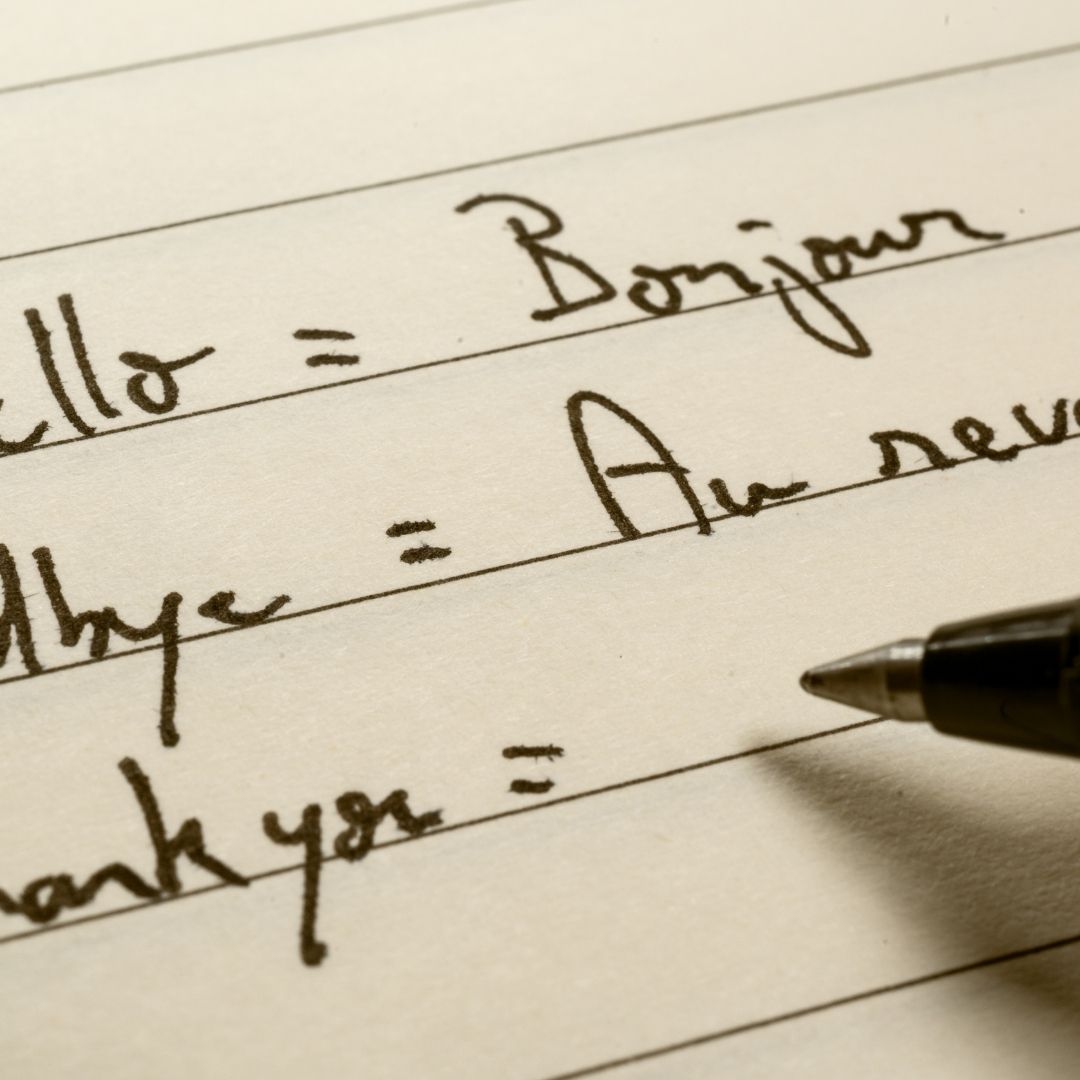 ello = Bonjour
dbye = Au revo
hank you =